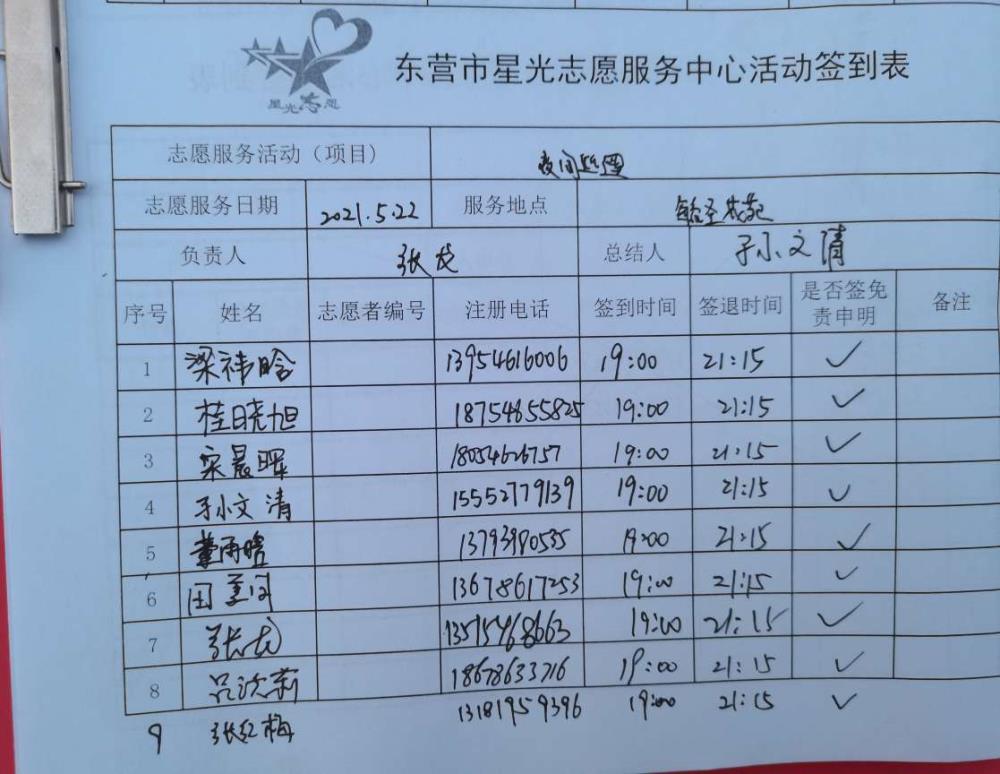 星光志愿
东营市星光志愿服务中心活动签到表
志愿服务活动（项目） 夜间巡逻
志愿服务日期 2021.5.22 服务地点
负责人 张龙 总结人 孙文清
序号 姓名 志愿者编号 注册电话 签到时间 签退时间 是否签免责申明 备注
1 梁祎晗 13954616006 19:00 21:15 ✓
2 桂晓旭 18754655825 19:00 21:15 ✓
3 宋晨晖 18054626757 19:00 21:15 ✓
4 孙文清 15552779139 19:00 21:15 ✓
5 董雨晗 13793980535 19:00 21:15 ✓
6 田 13678617253 19:00 21:15 ✓
7 张龙 13515468663 19:00 21:15 ✓
8 吕 18678633716 19:00 21:15 ✓
9 张红梅 13181959396 19:00 21:15 ✓